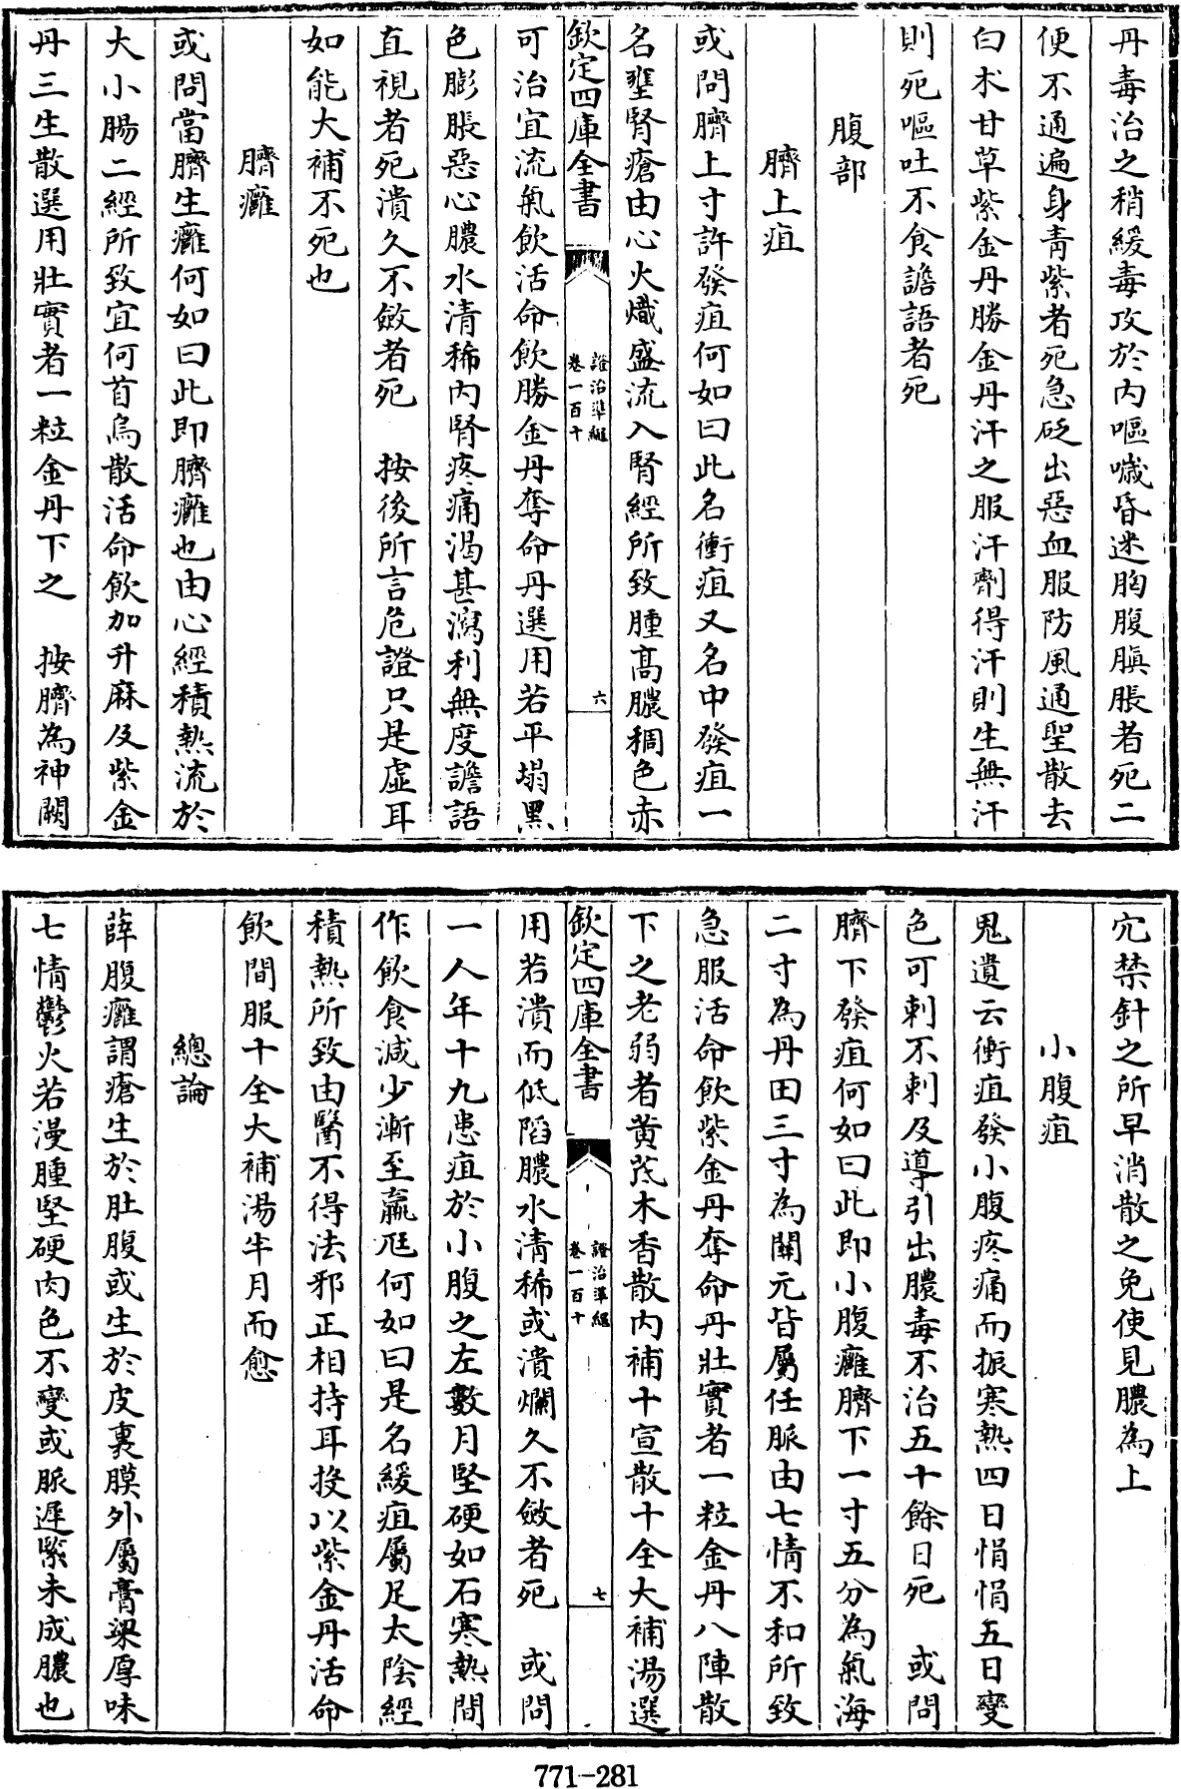 丹毒治之稍緩毒攻於内嘔噦昏迷胸腹䐜脹者死二
便不通遍身青紫者死急砭出惡血服防風通聖散去
白术甘草紫金丹勝金丹汗之服汗劑得汗則生無汗
則死嘔吐不食譫語者死
腹部
臍上疽
或問臍上寸許發疽何如曰此名衝疽又名中發疽一
名壅腎瘡由心火熾盛流入腎經所致腫髙膿稠色赤
欽定四庫全書
證治準繩
卷一百十
六
可治宜流氣飲活命飲勝金丹奪命丹選用若平塌黑
色膨脹惡心膿水清稀内腎疼痛渴甚瀉利無度譫語
直視者死潰久不斂者死 按後所言危證只是虛耳
如能大補不死也
臍癰
或問當臍生癰何如曰此即臍癰也由心經積熱流於
大小腸二經所致宜何首烏散活命飲加升麻及紫金
丹三生散選用壯實者一粒金丹下之 按臍為神闕
穴禁針之所早消散之免使見膿為上
小腹疽
鬼遺云衝疽發小腹疼痛而振寒熱四日悁悁五日變
色可刺不刺及導引出膿毒不治五十餘日死 或問
臍下發疽何如曰此即小腹癰臍下一寸五分為氣海
二寸為丹田三寸為關元皆屬任脈由七情不和所致
急服活命飲紫金丹奪命丹壯實者一粒金丹八陣散
下之老弱者黄茋木香散内補十宣散十全大補湯選
欽定四庫全書
證治準繩
卷一百十
七
用若潰而低陷膿水清稀或潰爛久不斂者死 或問
一人年十九患疽於小腹之左數月堅硬如石寒熱間
作飲食減少漸至羸尪何如曰是名緩疽屬足太陰經
積熱所致由醫不得法邪正相持耳投以紫金丹活命
飲間服十全大補湯半月而愈
總論
薛腹癰謂瘡生於肚腹或生於皮裏膜外屬膏粱厚味
七情鬱火若漫腫堅硬肉色不變或脈遲緊未成膿也
771-281